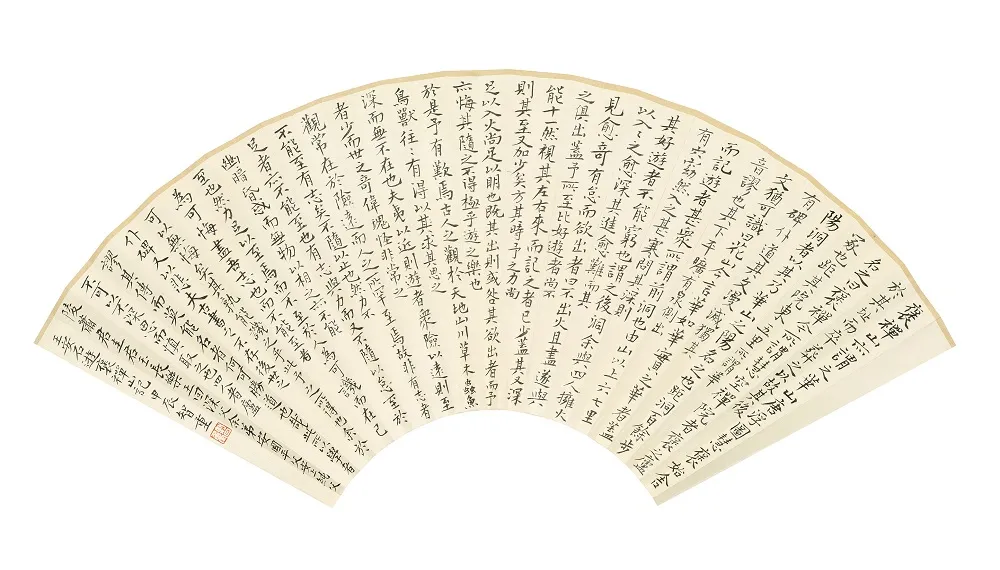 褒禪山亦謂之華山唐浮圖慧褒始舍
於其址而卒葬之以故其後
名之曰褒禪今所謂慧空禪院者褒之廬
冢也距其院東五里所謂華
陽洞者以其乃華山之陽名之也距洞百餘步
有碑仆道其文漫滅獨其為
文猶可識曰花山今言華如華實之華者蓋
音謬也其下平曠有泉側出
而記遊者甚眾所謂前洞也由山以上六七里
有穴窈然入之甚寒問其深則
其好遊者不能窮也謂之後洞余與四人擁火
以入入之愈深其進愈難而其
見愈奇有怠而欲出者曰不出火且盡遂與
之俱出蓋予所至比好遊者尚不
能十一然視其左右來而記之者已少蓋其又深
則其至又加少矣方其時予之力尚
足以入火尚足以明也既其出則或咎其欲出者而予
亦悔其隨之不得極乎遊之樂也
於是予有歎焉古人之觀於天地山川草木蟲魚
鳥獸往往有得以其求思之
深而無不在也夫夷以近則遊者眾險以遠則至
者少而世之奇偉瑰怪非常之
觀常在於險遠而人之所罕至焉故非有志者
不能至有志矣不隨以止也然力不
足者亦不能至也有志與力而又不隨以怠至於
幽暗昏惑而無物以相之亦不能
至也然力足以至焉而不至於人為可譏而在己
為可悔盡吾志也而不能至者
可以無悔矣其孰能譏之乎此予之所得也余於
仆碑又以悲夫古書之不存後世之
謬其傳而莫能名者何可勝道也哉此所以學者
不可以不深思而慎取之也四人者廬
陵蕭君圭君玉長樂王回深父余弟安國平父安上純父
安石遊褒禪山記 甲辰 智重